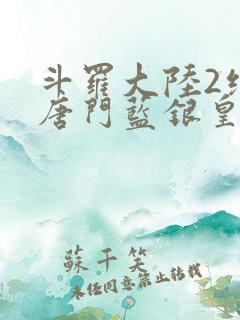 斗羅大陸2絕
唐門藍銀皇
蘇千笑
未經同意禁止轉載